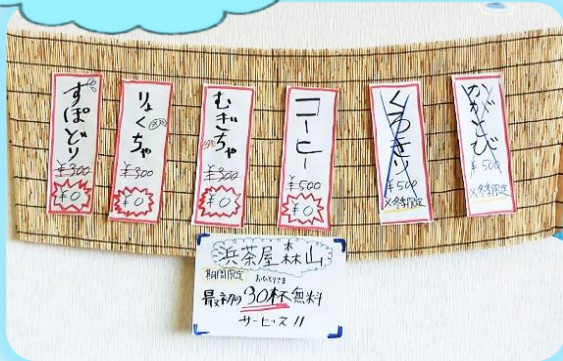 すぽどり
¥300
¥0
りょくちゃ
¥300
¥0
むぎちゃ
¥300
¥0
コーヒー
¥500
¥0
くろきり
¥500
※冬季限定
かがとび
¥500
※冬季限定
浜茶屋 森山
期間限定 おひとりさま
最初の30杯無料
サービス!!